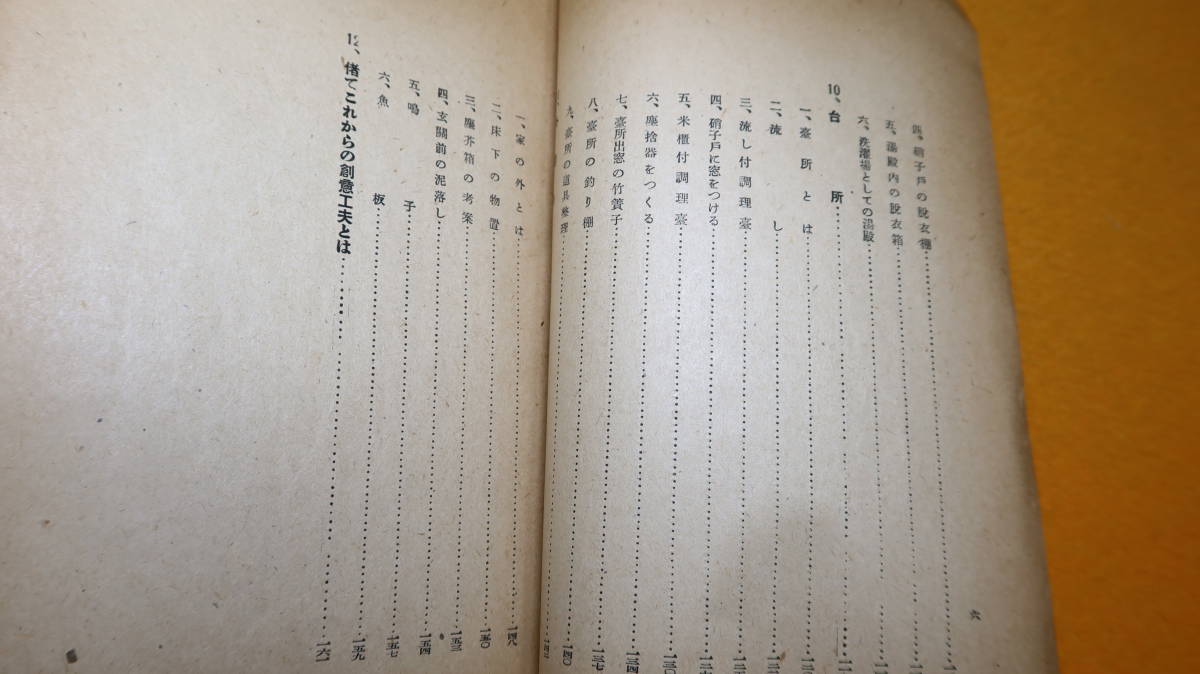 四、硝子戸の脱衣棚
五、湯殿内の脱衣箱
六、洗濯場としての湯殿
10、台所
一、臺所とは
二、流し
三、流し付調理臺
四、硝子戸に窓をつける
五、米櫃付調理臺
六、塵捨器をつくる 一三四
七、臺所出窓の竹簀子 一三七
八、臺所の釣り棚 一四〇
九、臺所の道具整理
六
一、家の外とは 一四八
二、床下の物置 一五〇
三、塵芥箱の考案 一五三
四、玄關前の泥落し 一五四
五、鳴子 一五七
六、魚板 一五九
12、偖てこれからの創意工夫とは 一六一